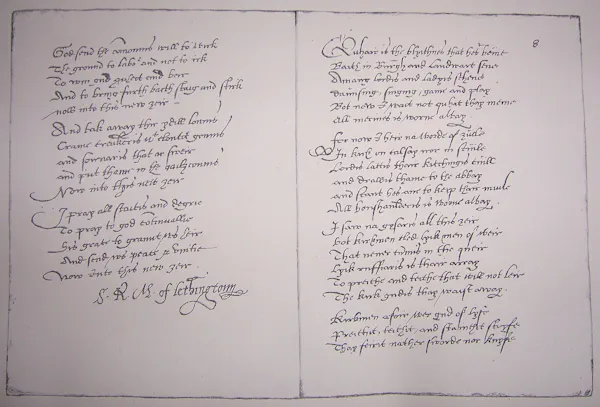 God send ye comonnis will to wirk
The ground to labor and not to irk
To win gud quheit and beir
And to bring furth baith staig and stirk
now into this new zeir.
And tak away thir
Crune
and forwaris that ar sweir
and put thame in the
Now into this new zeir
I pray all staitis and degrie
To pray to god
his grace to grannt ws heir
And send ws peax & vnitie
Now unto this new zeir.
S. R. M. of lethingtoun
8
Quhair is the blyithnes that hes beine
Baith in burgh and landwart seine
Amang lordis and ladyis scheine
Daunsing, singing, game and play
Bot now I wait not quhat thay meine
All merines is worne away.
For now I heir na worde of zuile
In kirk on calsay nor in scuile
Lordis lattis thair kitchingis cuill
and drawis thame to the abbay
and scant hes ane to keip thair mwle
All houshaulderis is worne away.
I saw na gysaris all this zeir
bot kirkmen cled lyik men of weir
That never cumis in the queir
Lyik ruffianis is thair array
To preiche and teiche that will not leir
The kirk gudis thay waist away.
Kirkmen afoir wer gud of lyfe
Preichit, teichit, and stainchit stryfe
Thay feirit nather sworde nor knyfe